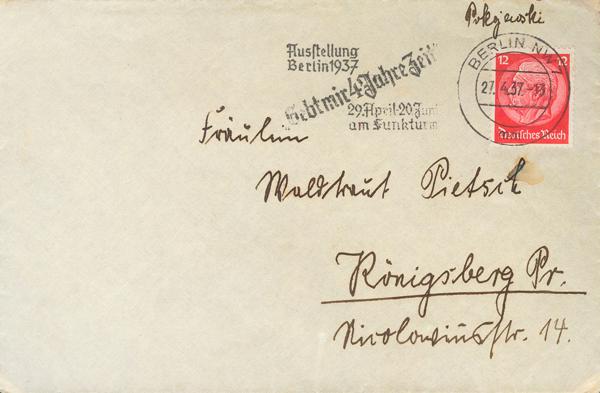 Pokojewski
Ausstellung
Berlin 1937
Gebt mir 4 Jahre Zeit
29. April-20. Juni
am Funkturm
BERLIN NW 7
27.4.37.-13
12 12
Deutsches Reich
Fräulein
Waldtraut Pietsch
Königsberg Pr.
Nicoloviusstr. 14.